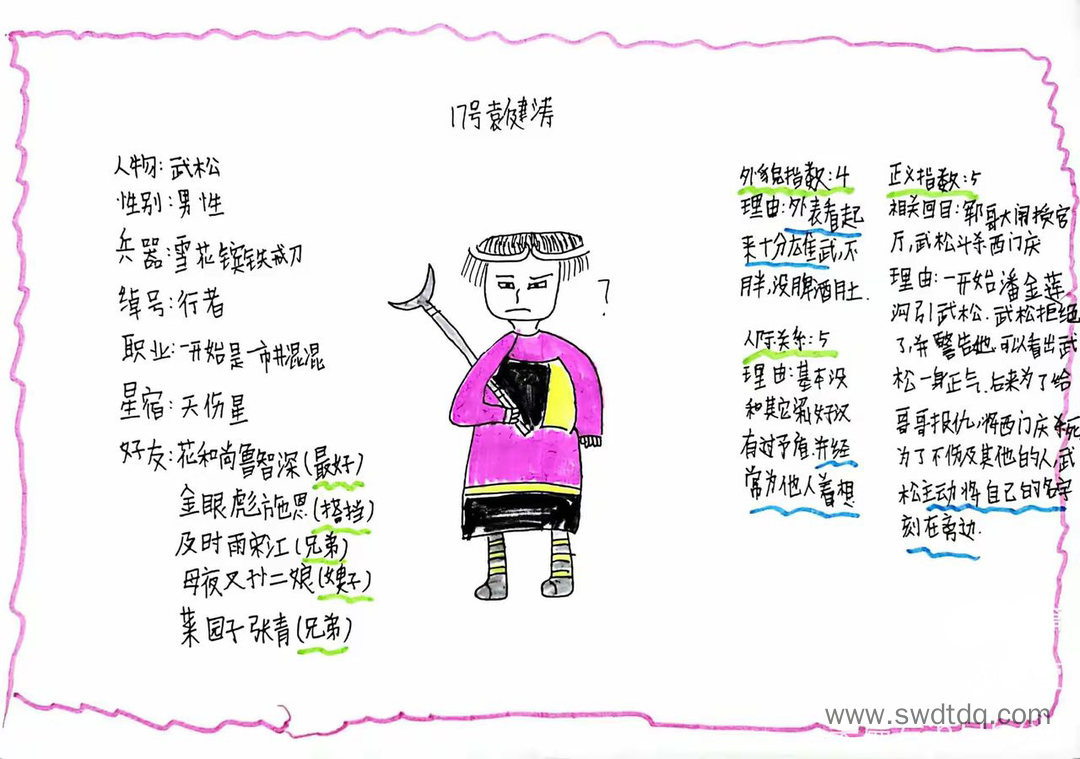 17号袁健涛
人物:武松
性别:男性
兵器:雪花镔铁戒刀
绰号:行者
职业:一开始是一市井混混
星宿:天伤星
好友:花和尚鲁智深(最好)
金眼彪施恩(搭挡)
及时雨宋江(兄弟)
母夜叉孙二娘(嫂子)
菜园子张青(兄弟)
?
外貌指数:4
理由:外表看起
来十分雄武,不
胖,没脾酒肚.
人际关系:5
理由:基本没
和其它梁山好汉
有过矛盾.并经
常为他人着想
正义指数:5
相关回目:郓哥大闹授官
厅,武松斗杀西门庆
理由:一开始潘金莲
沟引武松.武松拒绝
了,并警告她.可以看出武
松一身正气.后来为了给
哥哥报仇,将西门庆杀死
为了不伤及其他的人,武
松主动将自己的名字
刻在旁边.
www.swdtdq.com